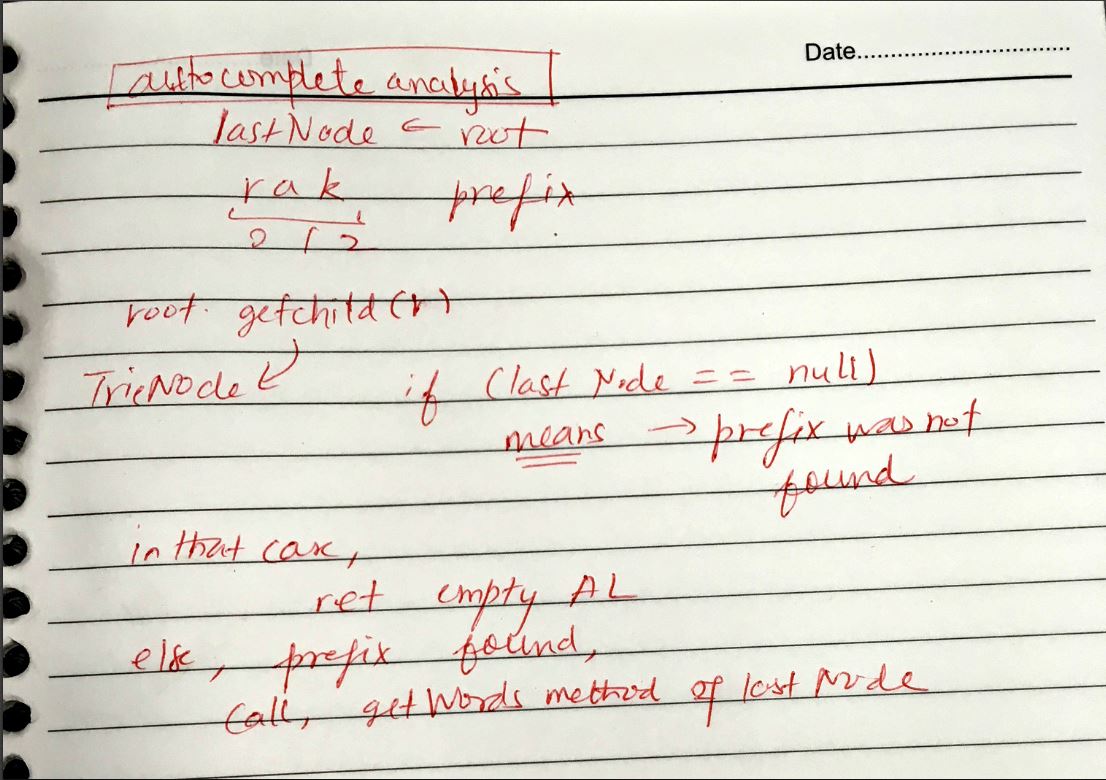 Date......................................
autocomplete analysis
lastNode ← root
r a k prefix
0 1 2
root. getchild(r)
TrieNode
if (last Node == null)
means → prefix was not
found
in that case,
ret empty AL
else, prefix found,
Call, getWords method of last Node